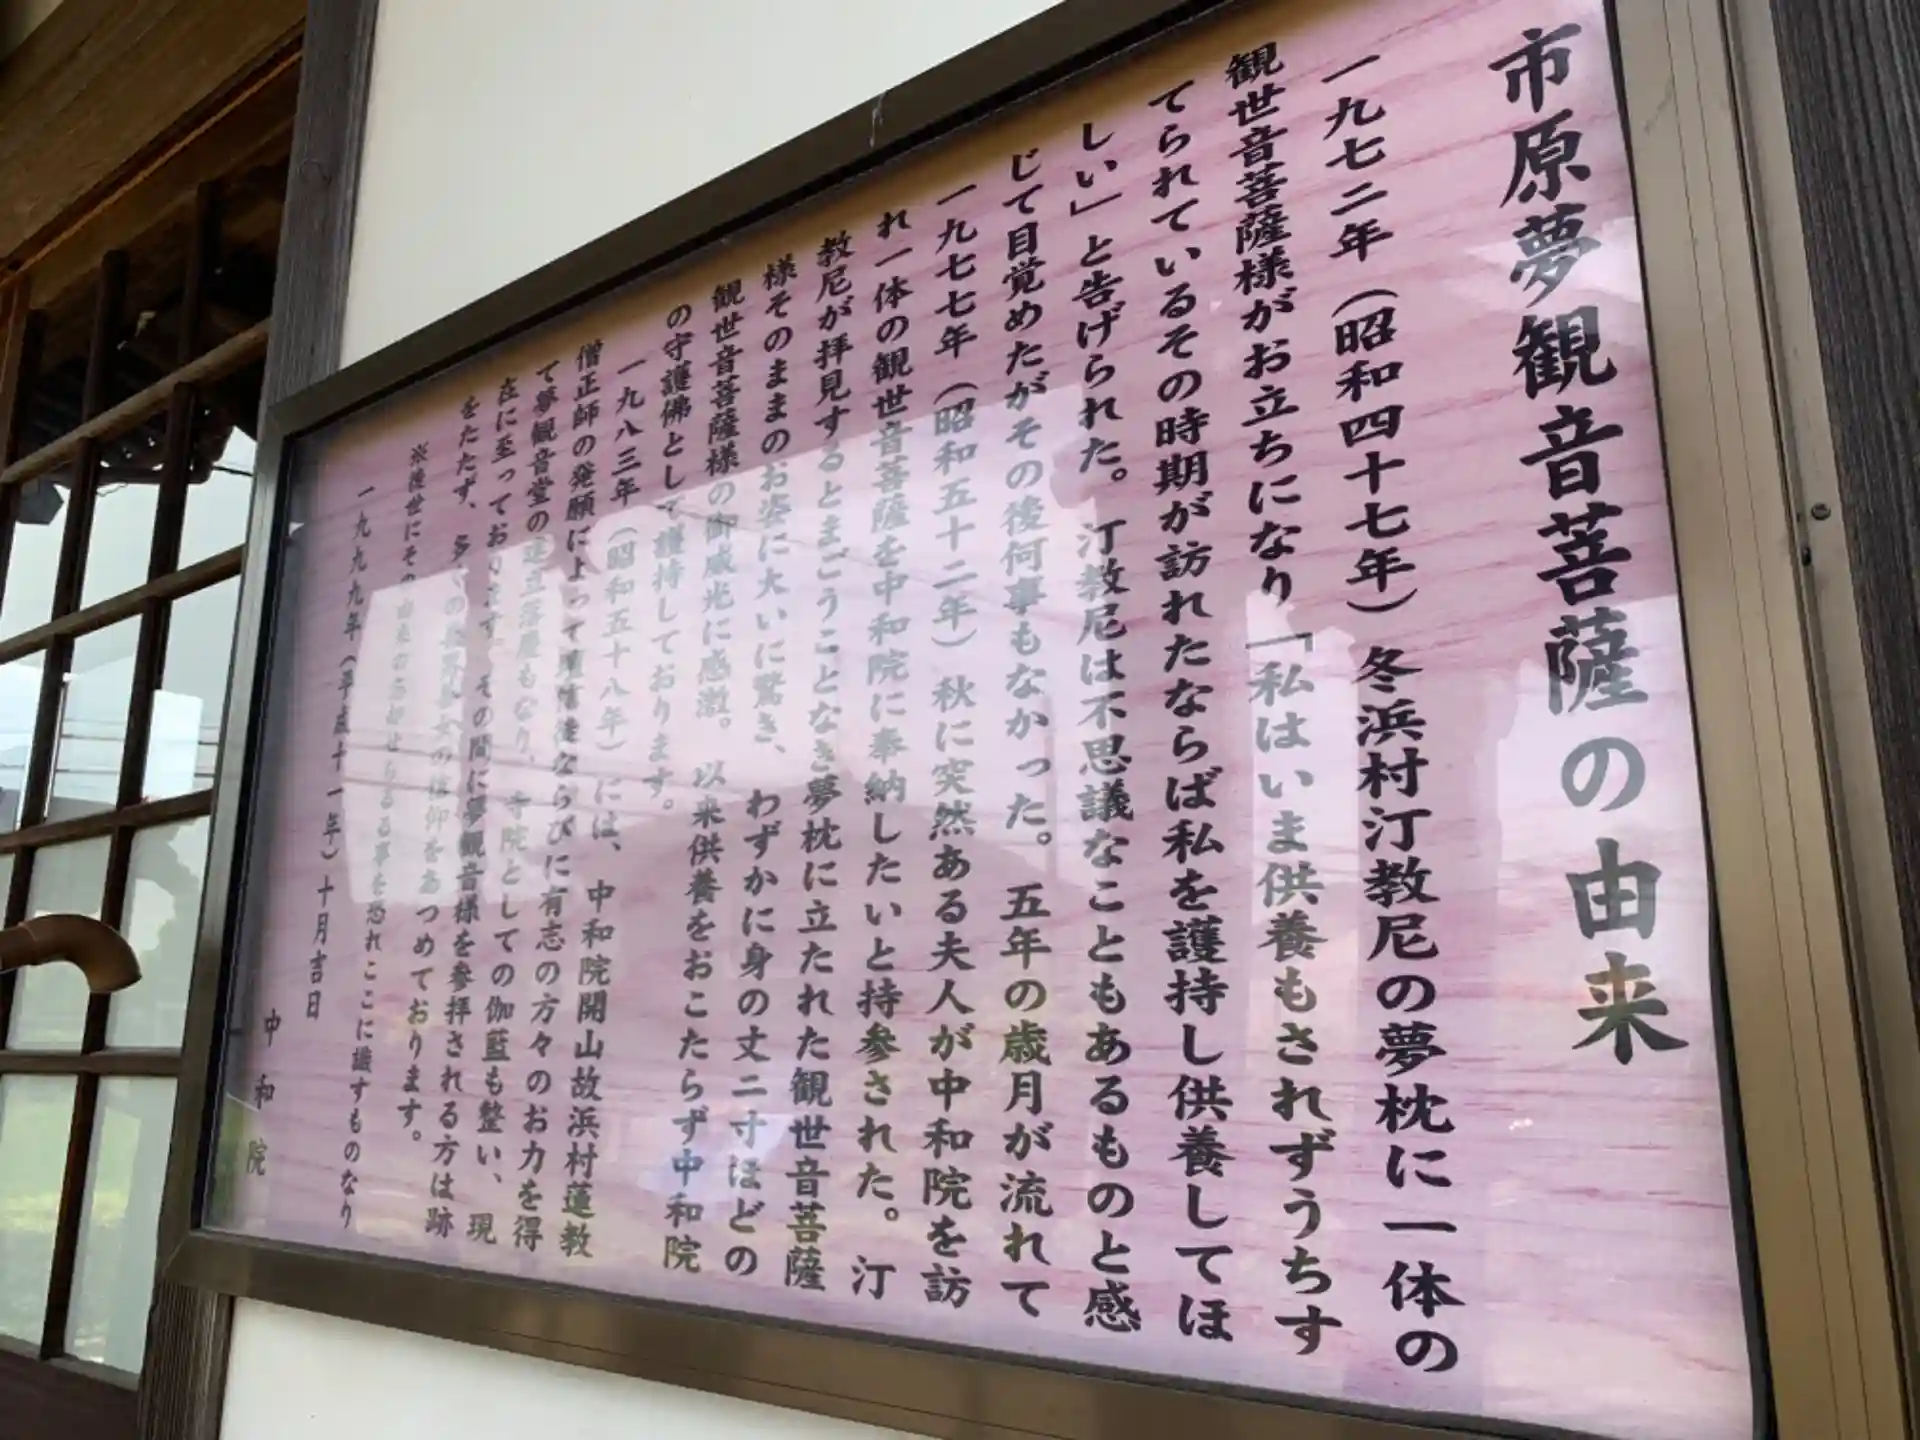 市原夢観音菩薩の由来
一九七二年（昭和四十七年）冬浜村汀教尼の夢枕に一体の
観世音菩薩様がお立ちになり「私はいま供養もされずうちす
てられているその時期が訪れたならば私を護持し供養してほ
しい」と告げられた。汀教尼は不思議なこともあるものと感
じて目覚めたがその後何事もなかった。五年の歳月が流れて
一九七七年（昭和五十二年）秋に突然ある夫人が中和院を訪
れ一体の観世音菩薩を中和院に奉納したいと持参された。汀
教尼が拝見するとまごうことなき夢枕に立たれた観世音菩薩
様そのままのお姿に大いに驚き、わずかに身の丈二寸ほどの
観世音菩薩様の御威光に感激。以来供養をおこたらず中和院
の守護佛として護持しております。
一九八三年（昭和五十八年）には、中和院開山故浜村蓮教
僧正師の発願によって信徒ならびに有志の方々のお力を得
て夢観音堂の建立落慶もなり、寺院としての伽藍も整い、現
在に至っております。その間に夢観音様を参拝される方は跡
をたたず、多くの善男善女の信仰をあつめております。
※後世にその由来の忘却せらるる事を恐れここに識すものなり
一九九九年（平成十一年）十月吉日
中和院